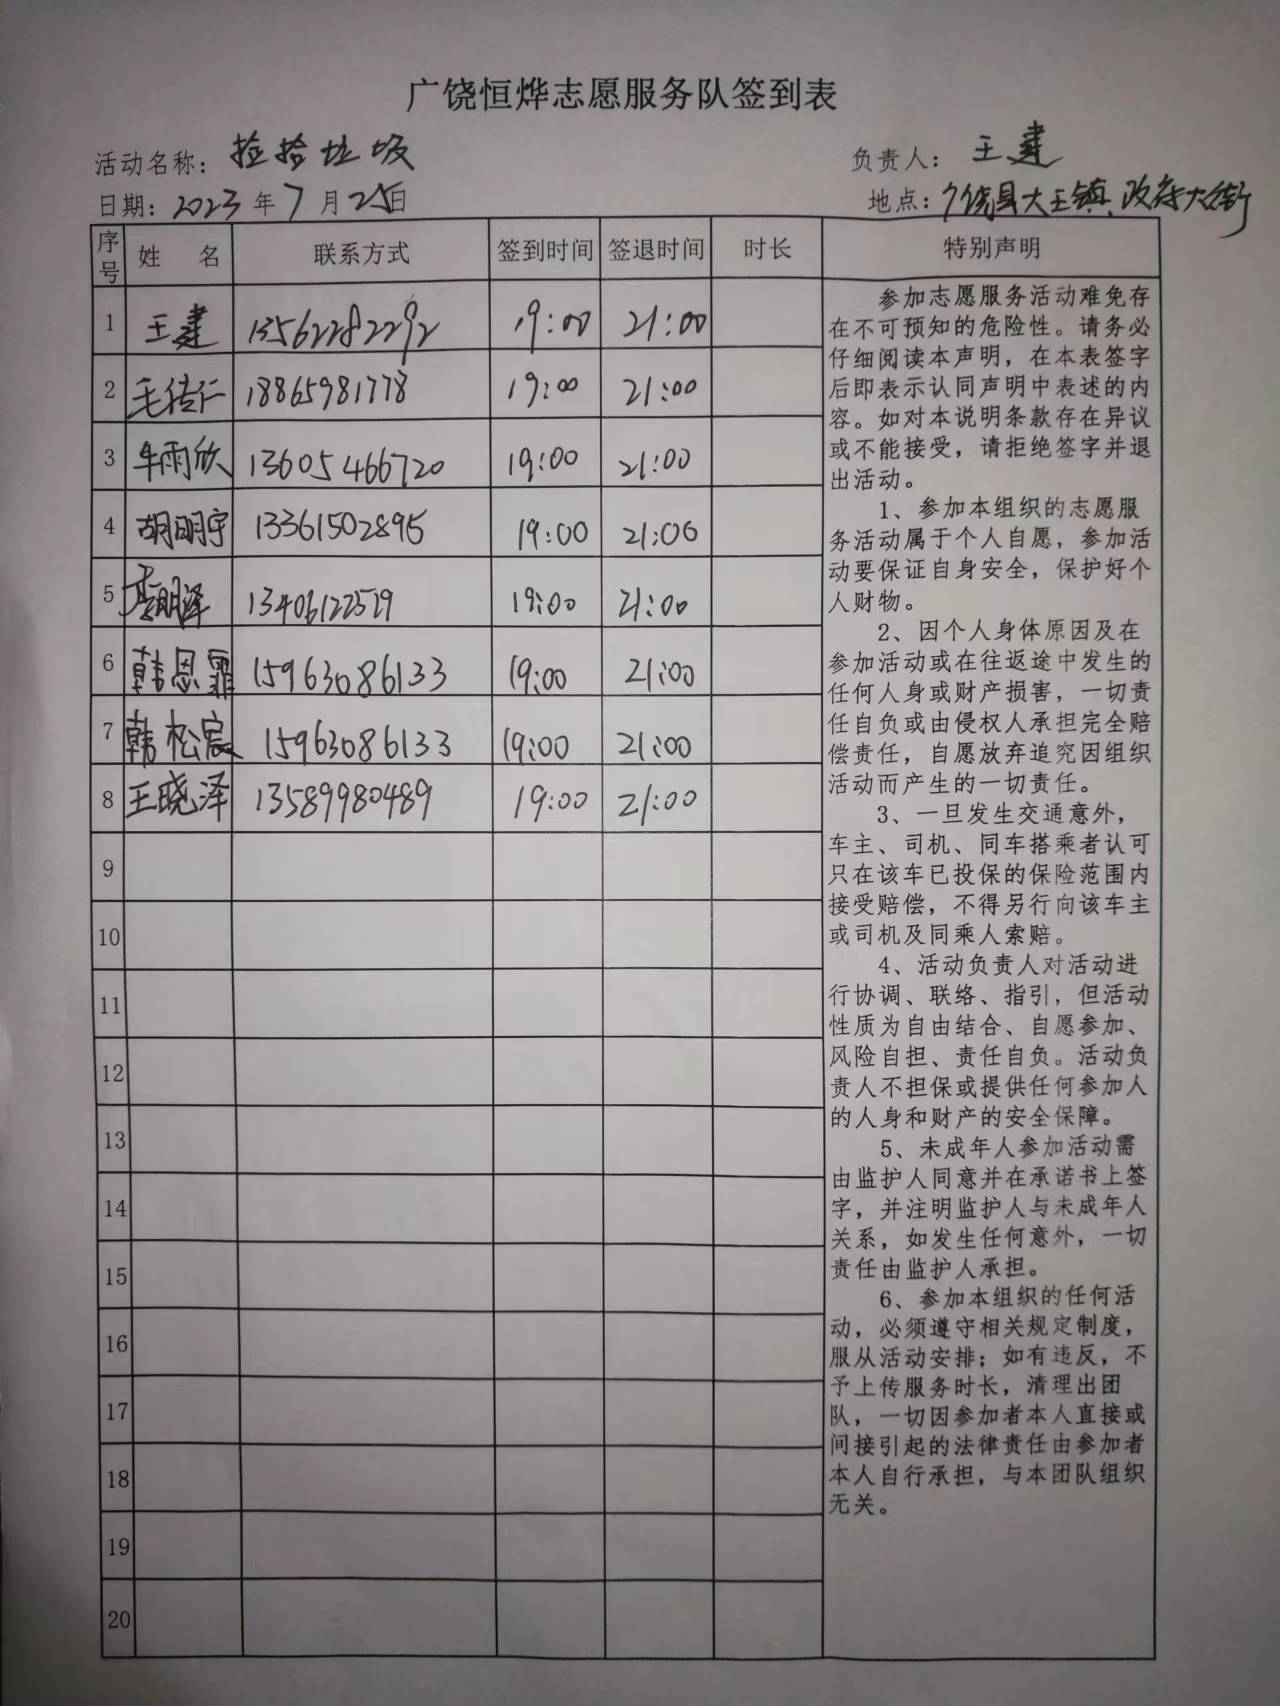 广饶恒烨志愿服务队签到表
活动名称：捡拾垃圾 负责人：王建
日期：2023年7月25日 地点：广饶县大王镇政府大街
序号 姓 名 联系方式 签到时间 签退时间 时长 特别声明
1 王建 13562282292 19:00 21:00
2 毛佳仁 18865981778 19:00 21:00
3 牟雨欣 13605466720 19:00 21:00
4 胡明宇 13361502895 19:00 21:00
5 李明泽 13406122519 19:00 21:00
6 韩恩霏 15963086133 19:00 21:00
7 韩松宸 15963086133 19:00 21:00
8 王晓泽 13589980489 19:00 21:00
9
10
11
12
13
14
15
16
17
18
19
20
参加志愿服务活动难免存
在不可预知的危险性。请务必
仔细阅读本声明，在本表签字
后即表示认同声明中表述的内
容。如对本说明条款存在异议
或不能接受，请拒绝签字并退
出活动。
1、参加本组织的志愿服
务活动属于个人自愿，参加活
动要保证自身安全，保护好个
人财物。
2、因个人身体原因及在
参加活动或在往返途中发生的
任何人身或财产损害，一切责
任自负或由侵权人承担完全赔
偿责任，自愿放弃追究因组织
活动而产生的一切责任。
3、一旦发生交通意外，
车主、司机、同车搭乘者认可
只在该车已投保的保险范围内
接受赔偿，不得另行向该车主
或司机及同乘人索赔。
4、活动负责人对活动进
行协调、联络、指引，但活动
性质为自由结合、自愿参加、
风险自担、责任自负。活动负
责人不担保或提供任何参加人
的人身和财产的安全保障。
5、未成年人参加活动需
由监护人同意并在承诺书上签
字，并注明监护人与未成年人
关系，如发生任何意外，一切
责任由监护人承担。
6、参加本组织的任何活
动，必须遵守相关规定制度，
服从活动安排；如有违反，不
予上传服务时长，清理出团
队，一切因参加者本人直接或
间接引起的法律责任由参加者
本人自行承担，与本团队组织
无关。